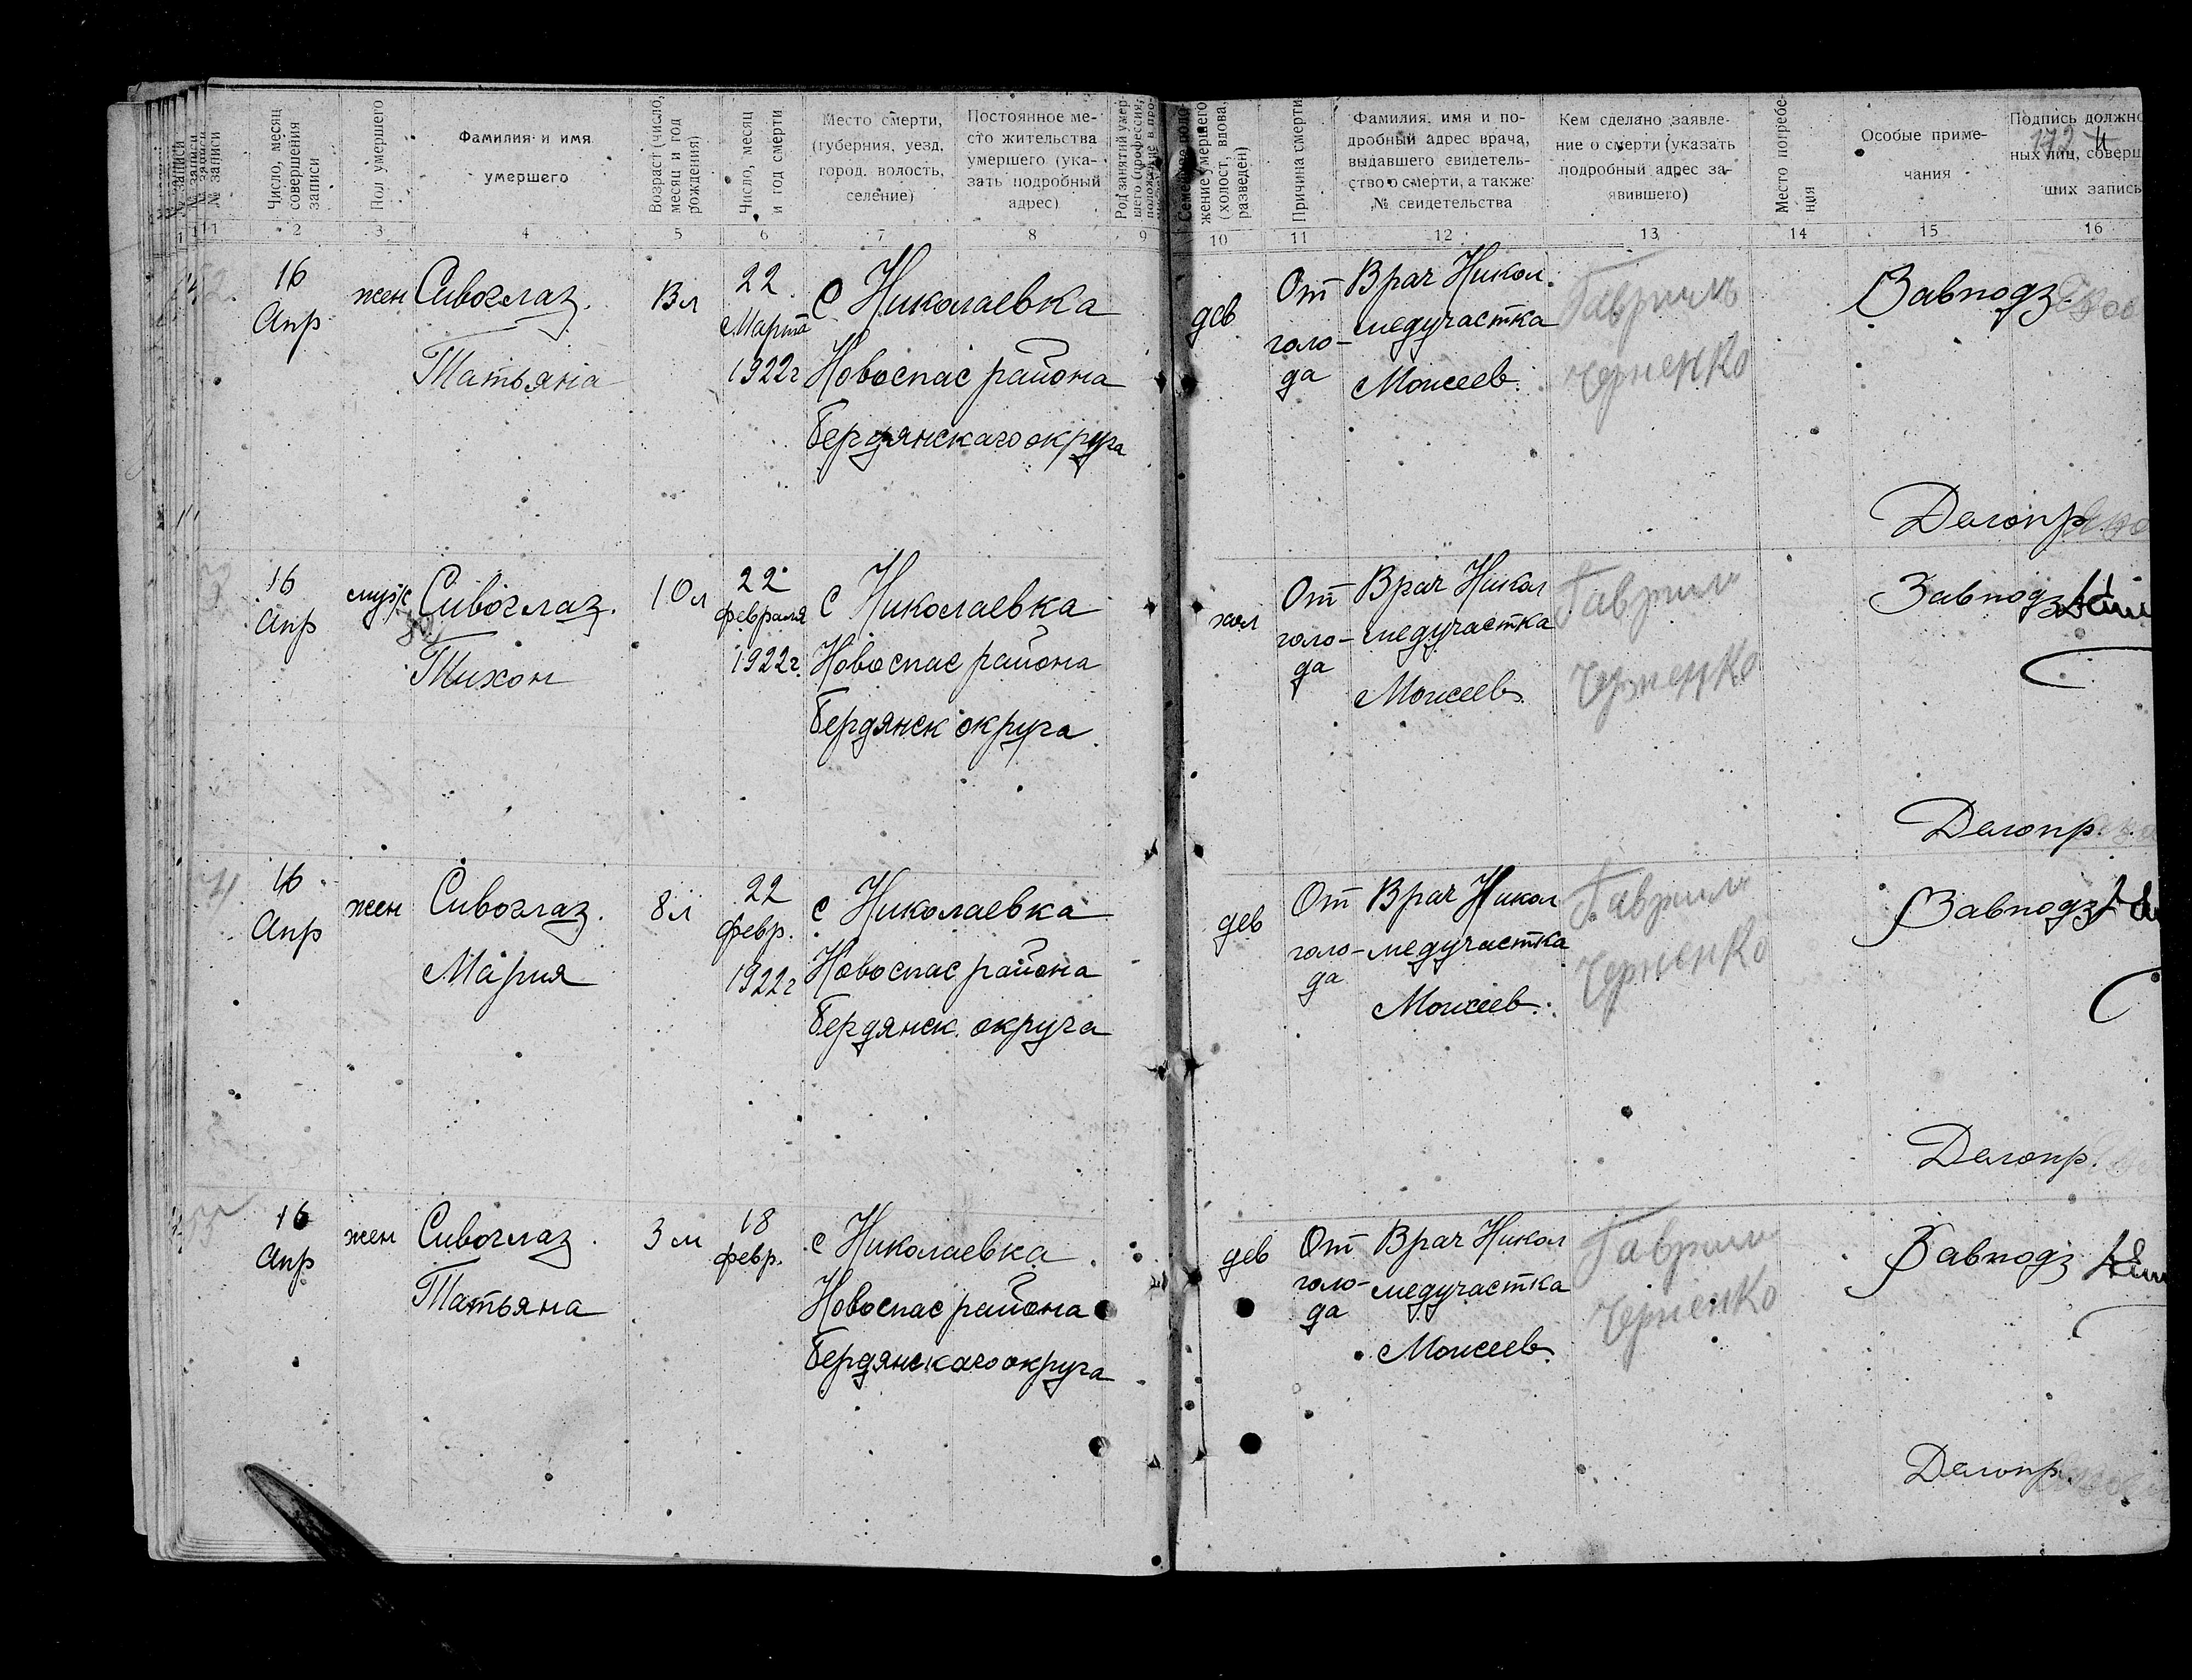 № записи
Число, месяц совершения записи
Пол умершего
Фамилия и имя
умершего
Возраст (число, месяц и год рождения)
Число, месяц и год смерти
Место смерти,
(губерния, уезд,
город, волость,
селение)
Постоянное ме-
сто жительства
умершего (ука-
зать подробный
адрес)
Род занятий умер-
шего (профессия,
положение в про-
Семейное поло-
жение умершего
(холост, вдова,
разведен)
Причина смерти
Фамилия, имя и по-
дробный адрес врача,
выдавшего свидетель-
ство о смерти, а также
№ свидетельства
Кем сделано заявле-
ние о смерти (указать
подробный адрес за-
явившего)
Место погребе-
ния
Особые приме-
чания
Подпись должно
ных лиц, соверш
ших запись
172
1 2 3 4 5 6 7 8 9 10 11 12 13 14 15 16
16
Апр
жен
Сивоглаз.
Татьяна
13л
22
Марта
1922г
с Николаевка
Новоспас района
Бердянскаго округа
дев
От
голо-
да
Врач Никол.
медучастка
Моисеев.
Гавриил
Черненко
Завподз.
Делопр.
16
Апр
муж
Сивоглаз.
Тихон
10л
22
февраля
1922г.
с Николаевка
Новоспас района
Бердянск округа
хол
От
голо-
да
Врач Никол
медучастка
Моисеев.
Гавриил
Черненко
Завподз
Делопр.
16
Апр
жен
Сивоглаз.
Мария
8л
22
февр.
1922г
с Николаевка
Новоспас района
Бердянск. округа
дев
От
голо-
да
Врач Никол
медучастка
Моисеев.
Гавриил
Черненко
Завподз
Делопр.
16
Апр
жен
Сивоглаз.
Татьяна
3 м
18
февр.
с Николаевка
Новоспас района
Бердянскаго округа
дев
От
голо-
да
Врач Никол
медучастка
Моисеев.
Гавриил
Черненко
Завподз
Делопр.